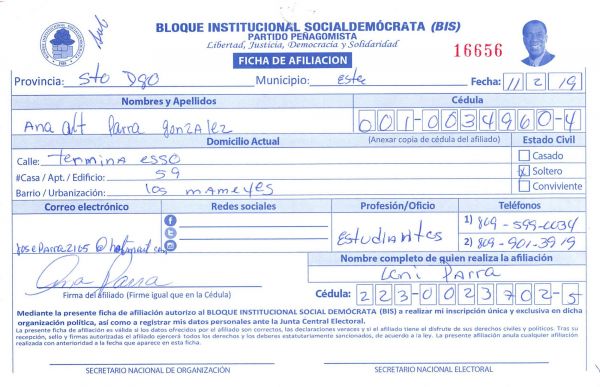 BLOQUE INSTITUCIONAL SOCIALDEMÓCRATA (BIS)
PARTIDO PEÑAGOMISTA
Libertad, Justicia, Democracia y Solidaridad
16656
FICHA DE AFILIACIÓN
Provincia: Sto Dgo Municipio: Este Fecha: 11/2/19
Nombres y Apellidos Cédula
Ana alt Parra gonzalez 001-0034960-4
Domicilio Actual (Anexar copia de cédula del afiliado) Estado Civil
Calle: Termina esso Casado
#Casa / Apt. / Edificio: 59 Soltero
Barrio / Urbanización: los mameyes Conviviente
Correo electrónico Redes sociales Profesión/Oficio Teléfonos
Estudiantes 1) 809-599-0034
joseparra2105@hotmail.com 2) 809-901-3919
Nombre completo de quien realiza la afiliación
Ana Parra Leni Parra
Firma del afiliado (Firme igual que en la Cédula) Cédula: 223-0023702-5
Mediante la presente ficha de afiliación autorizo al BLOQUE INSTITUCIONAL SOCIAL DEMÓCRATA (BIS) a realizar mi inscripción única y exclusiva en dicha
organización política, así como a registrar mis datos personales ante la Junta Central Electoral.
La presente ficha de afiliación es válida si los datos ofrecidos por el afiliado son correctos, las declaraciones veraces y si el afiliado tiene el disfrute de sus derechos civiles y políticos. Tras su
recepción, sello y firmas autorizadas el afiliado ejercerá todos los derechos y los deberes estatutariamente sancionados, de acuerdo a la ley. La presente afiliación anula cualquier afiliación
realizada con anterioridad a la fecha que aparece en esta ficha.
SECRETARIO NACIONAL DE ORGANIZACIÓN SECRETARIO NACIONAL ELECTORAL